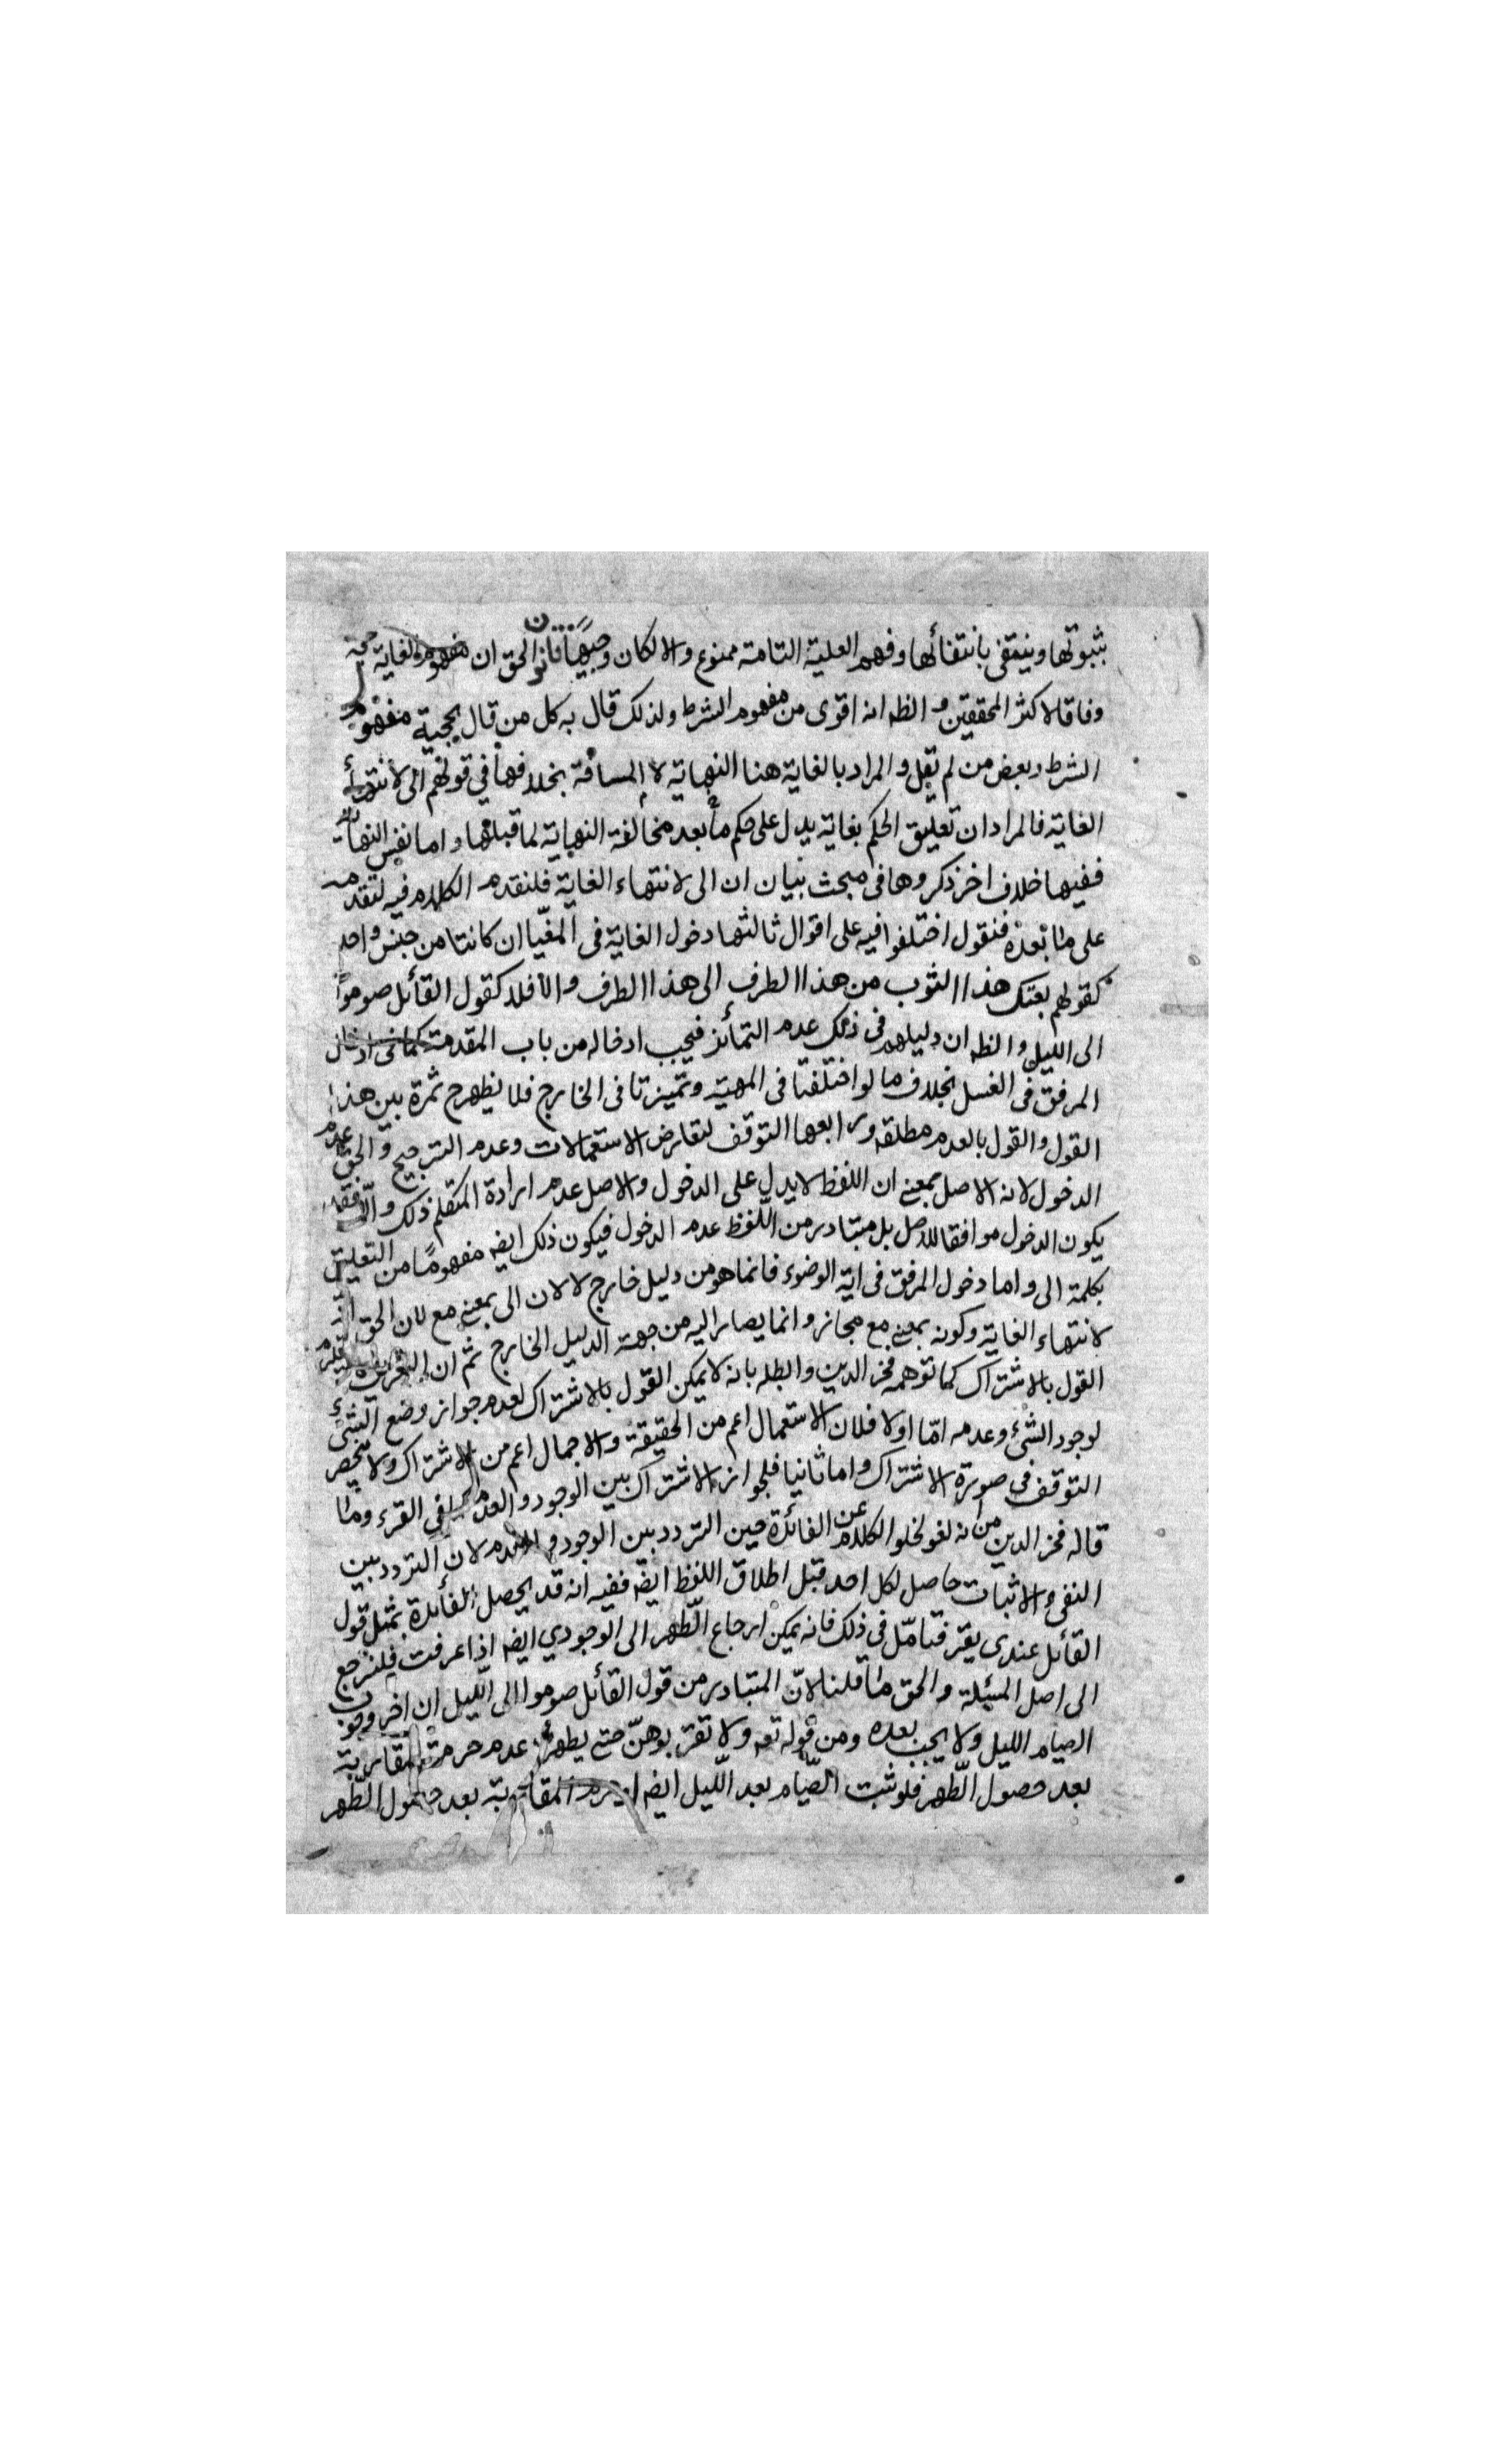 بثبوتها وينتفى بانتفائها وفهم العلية التامة ممنوع والا لكان وجيها قانون الحق ان مفهوم الغاية حجة
وفاقا لاكثر المحققين و الظه انه اقوى من مفهوم الشرط ولذلك قال به كل من قال بحجية مفهوم
الشرط وبعض من لم يقل و المراد بالغاية هنا النهاية لا المسافة بخلافها في قولهم الى لانتهاء
الغاية فالمراد ان تعليق الحكم بغاية يدل على حكم ما بعد مخالفة النهاية لما قبلها و اما نفس النهاية
ففيها خلاف اخر ذكروها فى مبحث بيان ان الى لانتهاء الغاية فلنقدم الكلام فيه لتقدمه
على ما بعده فنقول اختلفوا فيه على اقوال ثالثها دخول الغاية فى المغيا ان كانتا من جنس واحد
كقولهم بعتك هذا الثوب من هذا الطرف الى هذا الطرف والا فلا كقول القائل صوموا
الى الليل والظه ان دليلهم فى ذلك عدم التمائز فيجب ادخاله من باب المقدمة كما فى ادخال
المرفق فى الغسل بخلاف ما لو اختلفتا فى المهية وتميزتا فى الخارج فلا يظهرح ثمرة بين هذا
القول و القول بالعدم مطلقه ورابعها التوقف لتعارض الاستعمالات وعدم الترجيح والحق عدم
الدخول لانه الاصل بمعنى ان اللفظ لا يدل على الدخول والاصل عدم ارادة المتكلم ذلك والا فقد
يكون الدخول موافقا للاصل بل متبادر من اللفظ عدم الدخول فيكون ذلك ايضه مفهوما من التعليق
بكلمة الى و اما دخول المرفق فى اية الوضوء فانما هو من دليل خارج لا لان الى بمعنى مع لان الحق انه
لانتهاء الغاية وكونه بمعنى مع مجاز و انما يصار اليه من جهة الدليل الخارج ثم ان يستلزم
القول بالاشتراك كما توهمه فخر الدين و ابطله بانه لا يمكن القول بالاشتراك لعدم جواز وضع الشئ
لوجود الشئ وعدمه اما اولا فلان الاستعمال اعم من الحقيقة والاجمال اعم من الاشتراك ولا ينحصر
التوقف فى صورة الاشتراك و اما ثانيا فلجواز الاشتراك بين الوجود والعدم فى القرء وما
قاله فخر الدين من انه لغو لخلو الكلام عن الفائدة حين التردد بين الوجود والعدم لان التردد بين
النفى والاثبات حاصل لكل احد قبل اطلاق اللفظ ايضه ففيه انه قد يحصل الفائدة بمثل قول
القائل عندى يقرء فتامل فى ذلك فانه يمكن ارجاع الطهر الى الوجودي ايضه اذا عرفت فلنرجع
الى اصل المسئلة والحق ما قلنا لان المتبادر من قول القائل صوموا الى الليل ان اخر وجوب
الصيام الليل ولا يجب بعده ومن قوله تعه ولا تقربوهن حتى يطهرن عدم حرمة المقاربة
بعد حصول الطهر فلو ثبت الصيام بعد الليل ايضه المقاربة بعد حصول الطهر